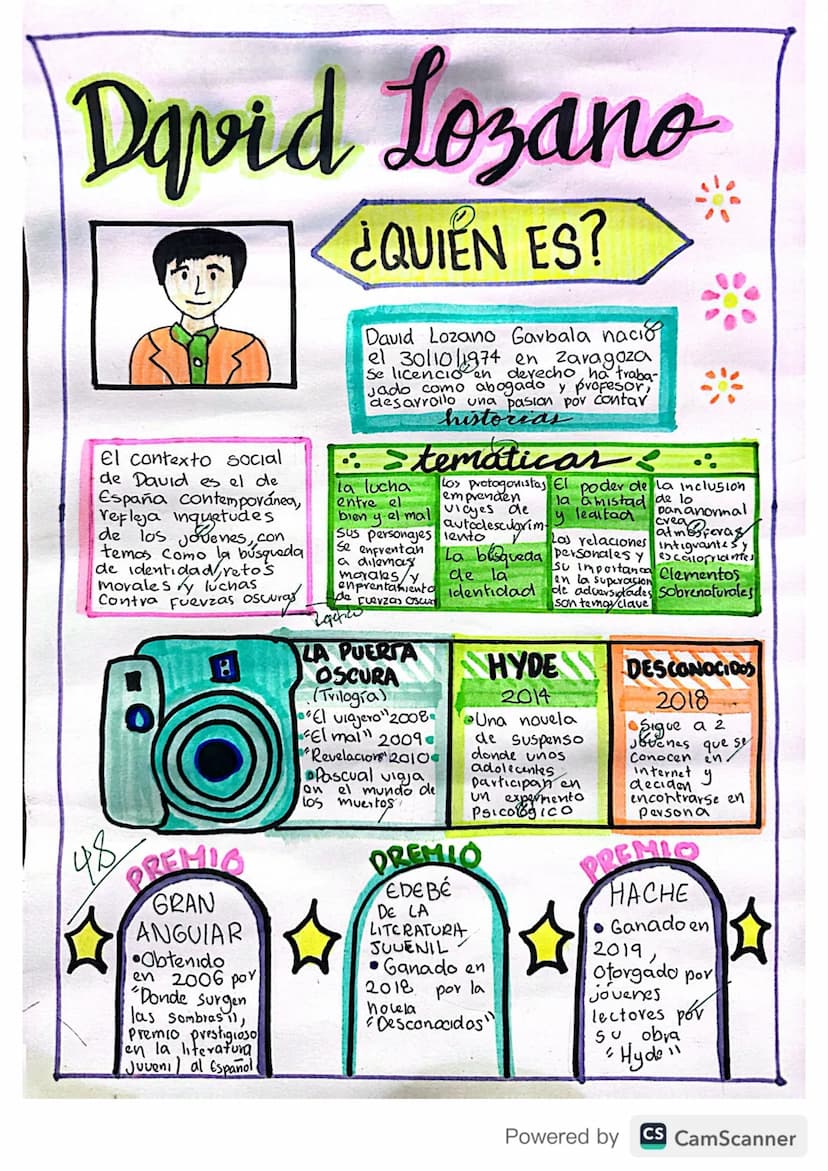 David Lozano
¿QUIÉN ES?
David Lozano Garbala nació
el 30/10/1974 en Zaragoza
se licenció en derecho, ha traba-
jado como abogado y profesor,
desarrollo una pasion por contar
historias
El contexto social
de David es el de
España contemporánea,
refleja inquietudes
de los jóvenes, con
temas como la búsqueda
de identidad, retos
morales y luchas
contra fuerzas oscuras
tematicas
la lucha
entre el
bien y el mal
sus personajes
se enfrentan
a dilemas
morales y
enfrentamiento
de fuerzas oscur
los protagonistas
emprenden
viajes de
autodescubrim-
iento
La búsqueda
de la
identidad
El poder de
la amistad
y lealtad
las relaciones
personales y
su importancia
en la superación
de adversidades
son temas clave
la inclusion
de lo
paranormal
crea
atmosferas
intigrantes y
escalofriantes
Elementos
sobrenaturales
LA PUERTA
OSCURA
(Trilogía)
"El viajero" 2008
"El mal" 2009
"Revelacion" 2010
Pascual viaja
en el mundo de
los muertos
HYDE
2014
Una novela
de suspenso
donde unos
adolecentes
participan en
un experimento
psicológico
DESCONOCIDOS
2018
Sigue a 2
jóvenes que se
conocen en
internet y
deciden
encontrarse en
persona
48
PREMIO
GRAN
ANGULAR
Obtenido
en 2006 por
"Donde surgen
las sombras",
premio prestigioso
en la literatura
juvenil al Español
PREMIO
EDEBÉ
DE LA
LITERATURA
JUVENIL
Ganado en
2018 por la
novela
"Desconocidos"
PREMIO
HACHE
Ganado en
2019,
Otorgado por
jóvenes
lectores por
su obra
"Hyde"
Powered by CS CamScanner